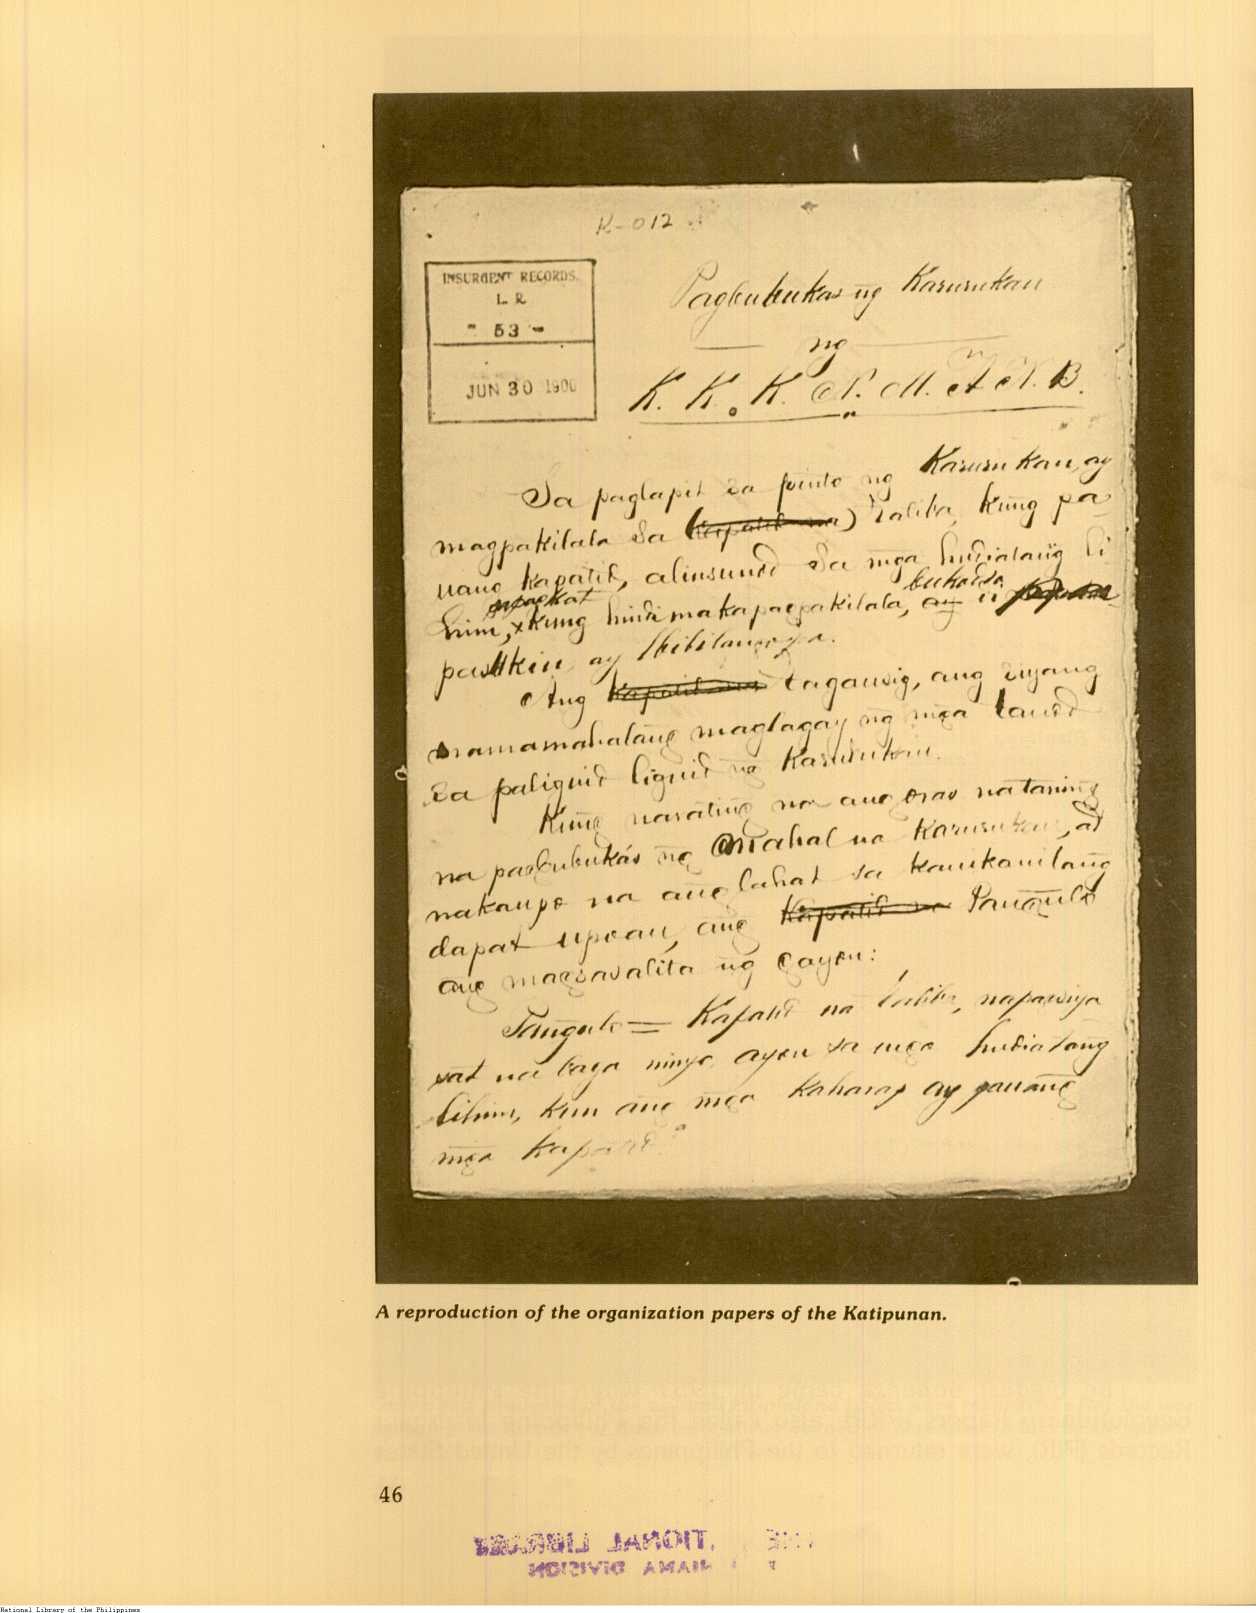 K-012
INSURGENT RECORDS.
L. R.
- 53 -
JUN 30 1900
Pagbubukas ng Karurukan
ng
K. K. K. N. M. A N. B.
Sa paglapit sa pinto ng Karurukan, ay
magpakilala sa (Kapatid na) Taliba, kung pa
nang kapatid, alinsunod sa mḡa hudiatang li
him, ngpagkat
x kung hindi makapagpakilala, ay di bukod sa
pasukin, ay
Ang Kapatid na tagausig, ang siyang
mamamahalang maglagay ng mḡa tanod
sa paliguid liguid ng Karurukan.
Kung narating na ang oras na taning
na pagbubukás ng mahal na Karurukan, at
nakaupo na ang lahat sa kanikanilang
dapat upoan, ang Kapatid na Pangulo
ang magsasalita ng gayon:
Pangulo = Kapatid na taliba,
na baga ninyo, ayon sa mga hudiatang
lihim, kun ang mga kaharap ay panang
mga kapatid?
A reproduction of the organization papers of the Katipunan.
46
TIONAL LIBRARY
DIVISION
National Library of the Philippines